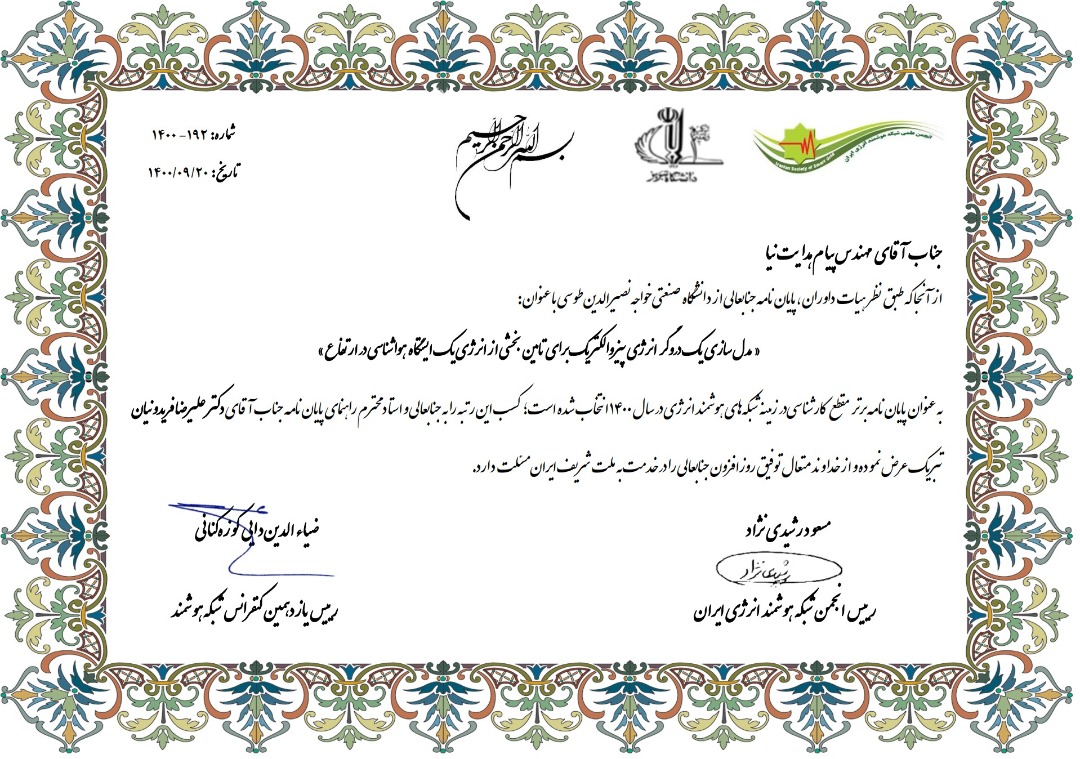 بسم الله الرحمن الرحیم
شماره: ۱۹۲-۱۴۰۰
تاریخ: ۱۴۰۰/۰۹/۲۰
انجمن علمی شبکه هوشمند انرژی ایران
Iranian Society of Smart Grid
دانشگاه تبریز
جناب آقای مهندس پیام هدایت نیا
از آنجا که طبق نظر هیات داوران، پایان نامه جنابعالی از دانشگاه صنعتی خواجه نصیرالدین طوسی با عنوان:
« مدل سازی یک دروگر انرژی پیزوالکتریک برای تامین بخشی از انرژی یک ایستگاه هواشناسی در ارتفاع »
به عنوان پایان نامه برتر مقطع کارشناسی در زمینه شبکه های هوشمند انرژی در سال ۱۴۰۰ انتخاب شده است؛ کسب این رتبه را به جنابعالی و استاد محترم راهنمای پایان نامه جناب آقای دکتر علیرضا فریدونیان
تبریک عرض نموده و از خداوند متعال توفیق روز افزون جنابعالی را در خدمت به ملت شریف ایران مسئلت دارد.
مسعود رشیدی نژاد
رشیدی نژاد
رییس انجمن شبکه هوشمند انرژی ایران
ضیاء الدین دائی کوزه کنانی
رییس یازدهمین کنفرانس شبکه هوشمند